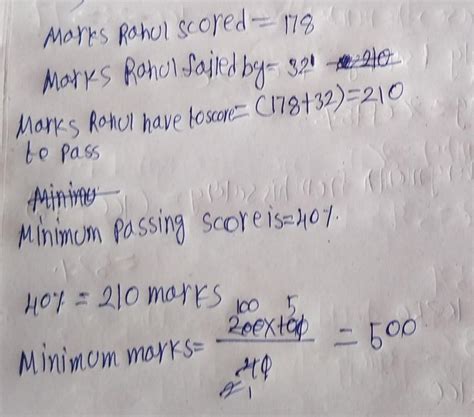 Marks Rahul scored = 178
Marks Rahul failed by = 32
Marks Rahul have to score = (178+32) = 210
to pass
Minimum passing score is = 40%.
40% = 210 marks
100 5
Minimum marks = 200×100 = 500
40
2 1